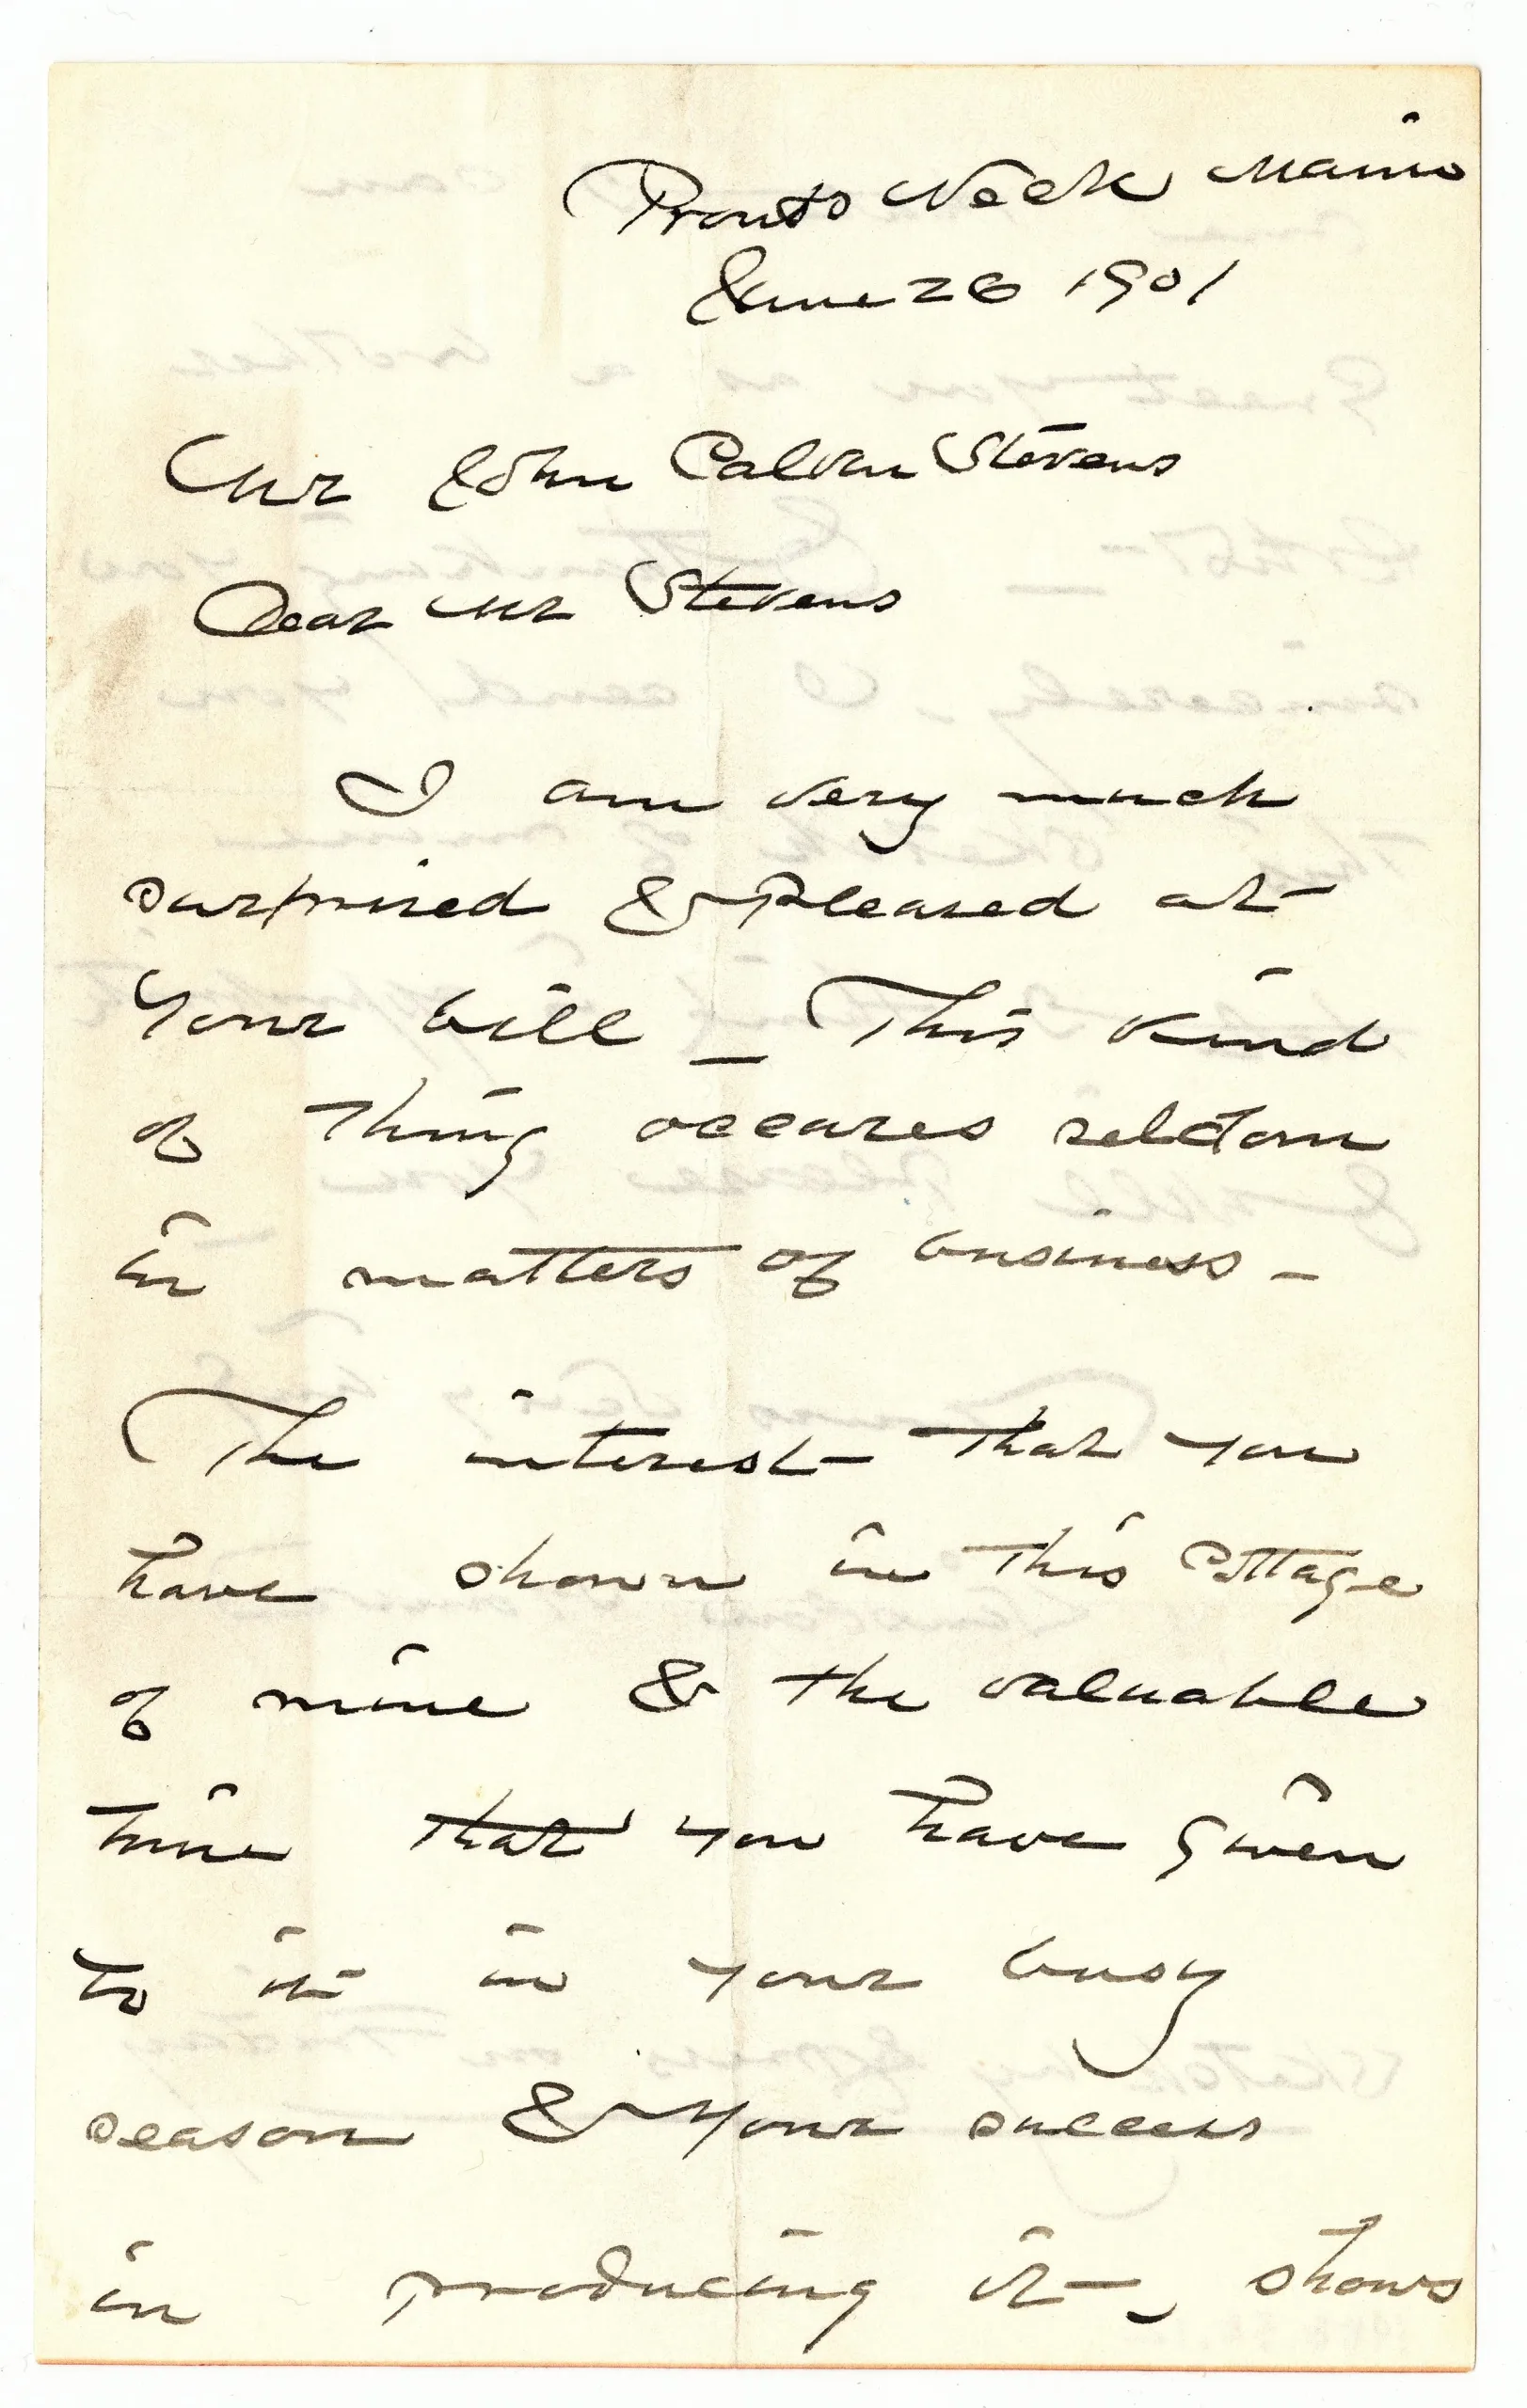 Prouts Neck Maine
June 26 1901
Mr John Calvin Stevens
Dear Mr Stevens
I am very much
surprised & pleased at
your bill _ This kind
of thing occures seldom
in matters of business _
The interest that you
have shown in this Cottage
of mine & the valuable
time that you have given
to it in your busy
season & your success
in producing it, shows